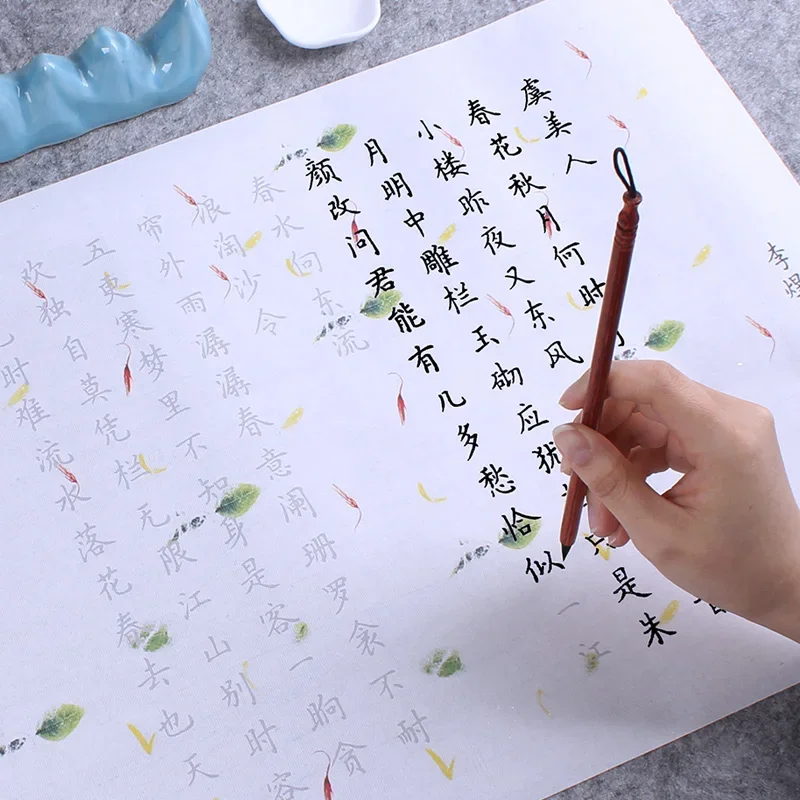 虞美人 李煜
春花秋月何时
小楼昨夜又东风
月明中雕栏玉砌应犹只是朱
颜改问君能有几多愁恰似一江
春水向东流
浪淘沙令
帘外雨潺潺春意阑珊罗衾不耐
五更寒梦里不知身是客一晌贪
欢独自莫凭栏无限江山别时容
时难流水落花春去也天